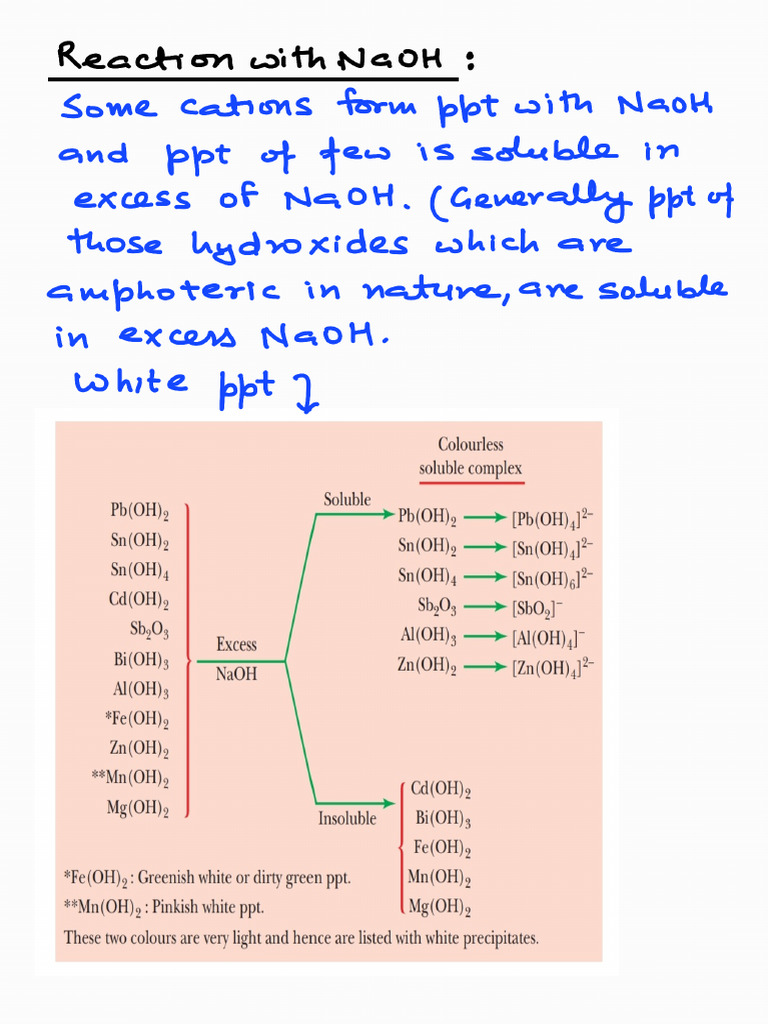 Reaction with NaOH :
Some cations form ppt with NaOH
and ppt of few is soluble in
excess of NaOH. (Generally ppt of
those hydroxides which are
amphoteric in nature, are soluble
in excess NaOH.
White ppt ↓
Colourless
soluble complex
Pb(OH)₂
Sn(OH)₂
Sn(OH)₄
Cd(OH)₂
Sb₂O₃
Bi(OH)₃
Al(OH)₃
*Fe(OH)₂
Zn(OH)₂
**Mn(OH)₂
Mg(OH)₂
Excess
NaOH
Soluble
Pb(OH)₂ → [Pb(OH)₄]²⁻
Sn(OH)₂ → [Sn(OH)₄]²⁻
Sn(OH)₄ → [Sn(OH)₆]²⁻
Sb₂O₃ → [SbO₂]⁻
Al(OH)₃ → [Al(OH)₄]⁻
Zn(OH)₂ → [Zn(OH)₄]²⁻
Insoluble
Cd(OH)₂
Bi(OH)₃
Fe(OH)₂
Mn(OH)₂
Mg(OH)₂
*Fe(OH)₂ : Greenish white or dirty green ppt.
**Mn(OH)₂ : Pinkish white ppt.
These two colours are very light and hence are listed with white precipitates.